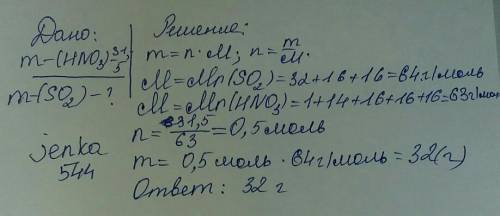 Дано:
m-(HNO3) 31,5
m-(SO2)-?
jenka
544
Решение:
m=n·M; n=m/M.
M=Mr(SO2)=32+16+16=64г/моль
M=Mr(HNO3)=1+14+16+16+16=63г/мол
n=31,5/63=0,5моль
m= 0,5моль·64г/моль=32(г)
Ответ: 32 г